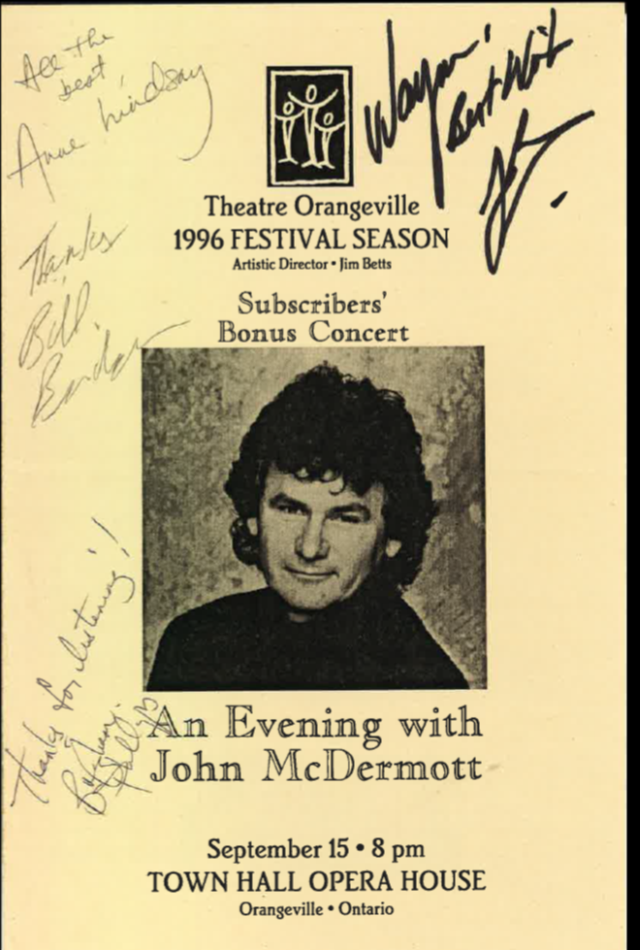 All the
best,
Anne Lindsay
Wayne'
Best Wish
John
Theatre Orangeville
1996 FESTIVAL SEASON
Artistic Director • Jim Betts
Thanks
Bill
Subscribers'
Bonus Concert
Thanks for listening!
An Evening with
John McDermott
September 15 • 8 pm
TOWN HALL OPERA HOUSE
Orangeville • Ontario